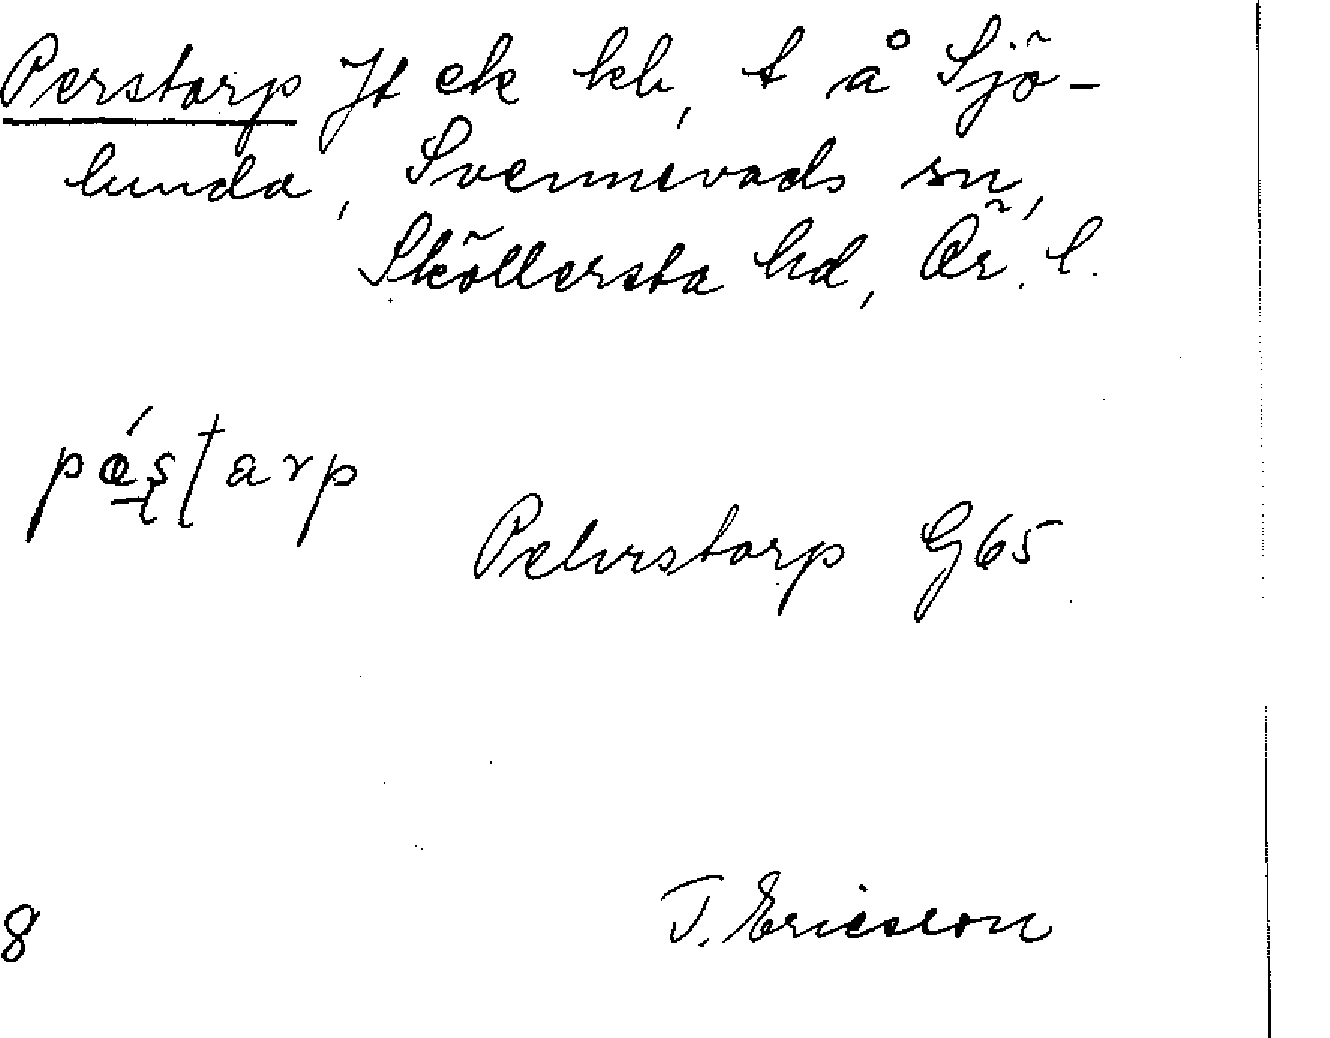 Perstorp Jt ek kb, t å Sjö-
lunda, Svennevads sn,
Sköllersta hd, Ör. l.
Pehrstorp G65
8
T. Ericsson